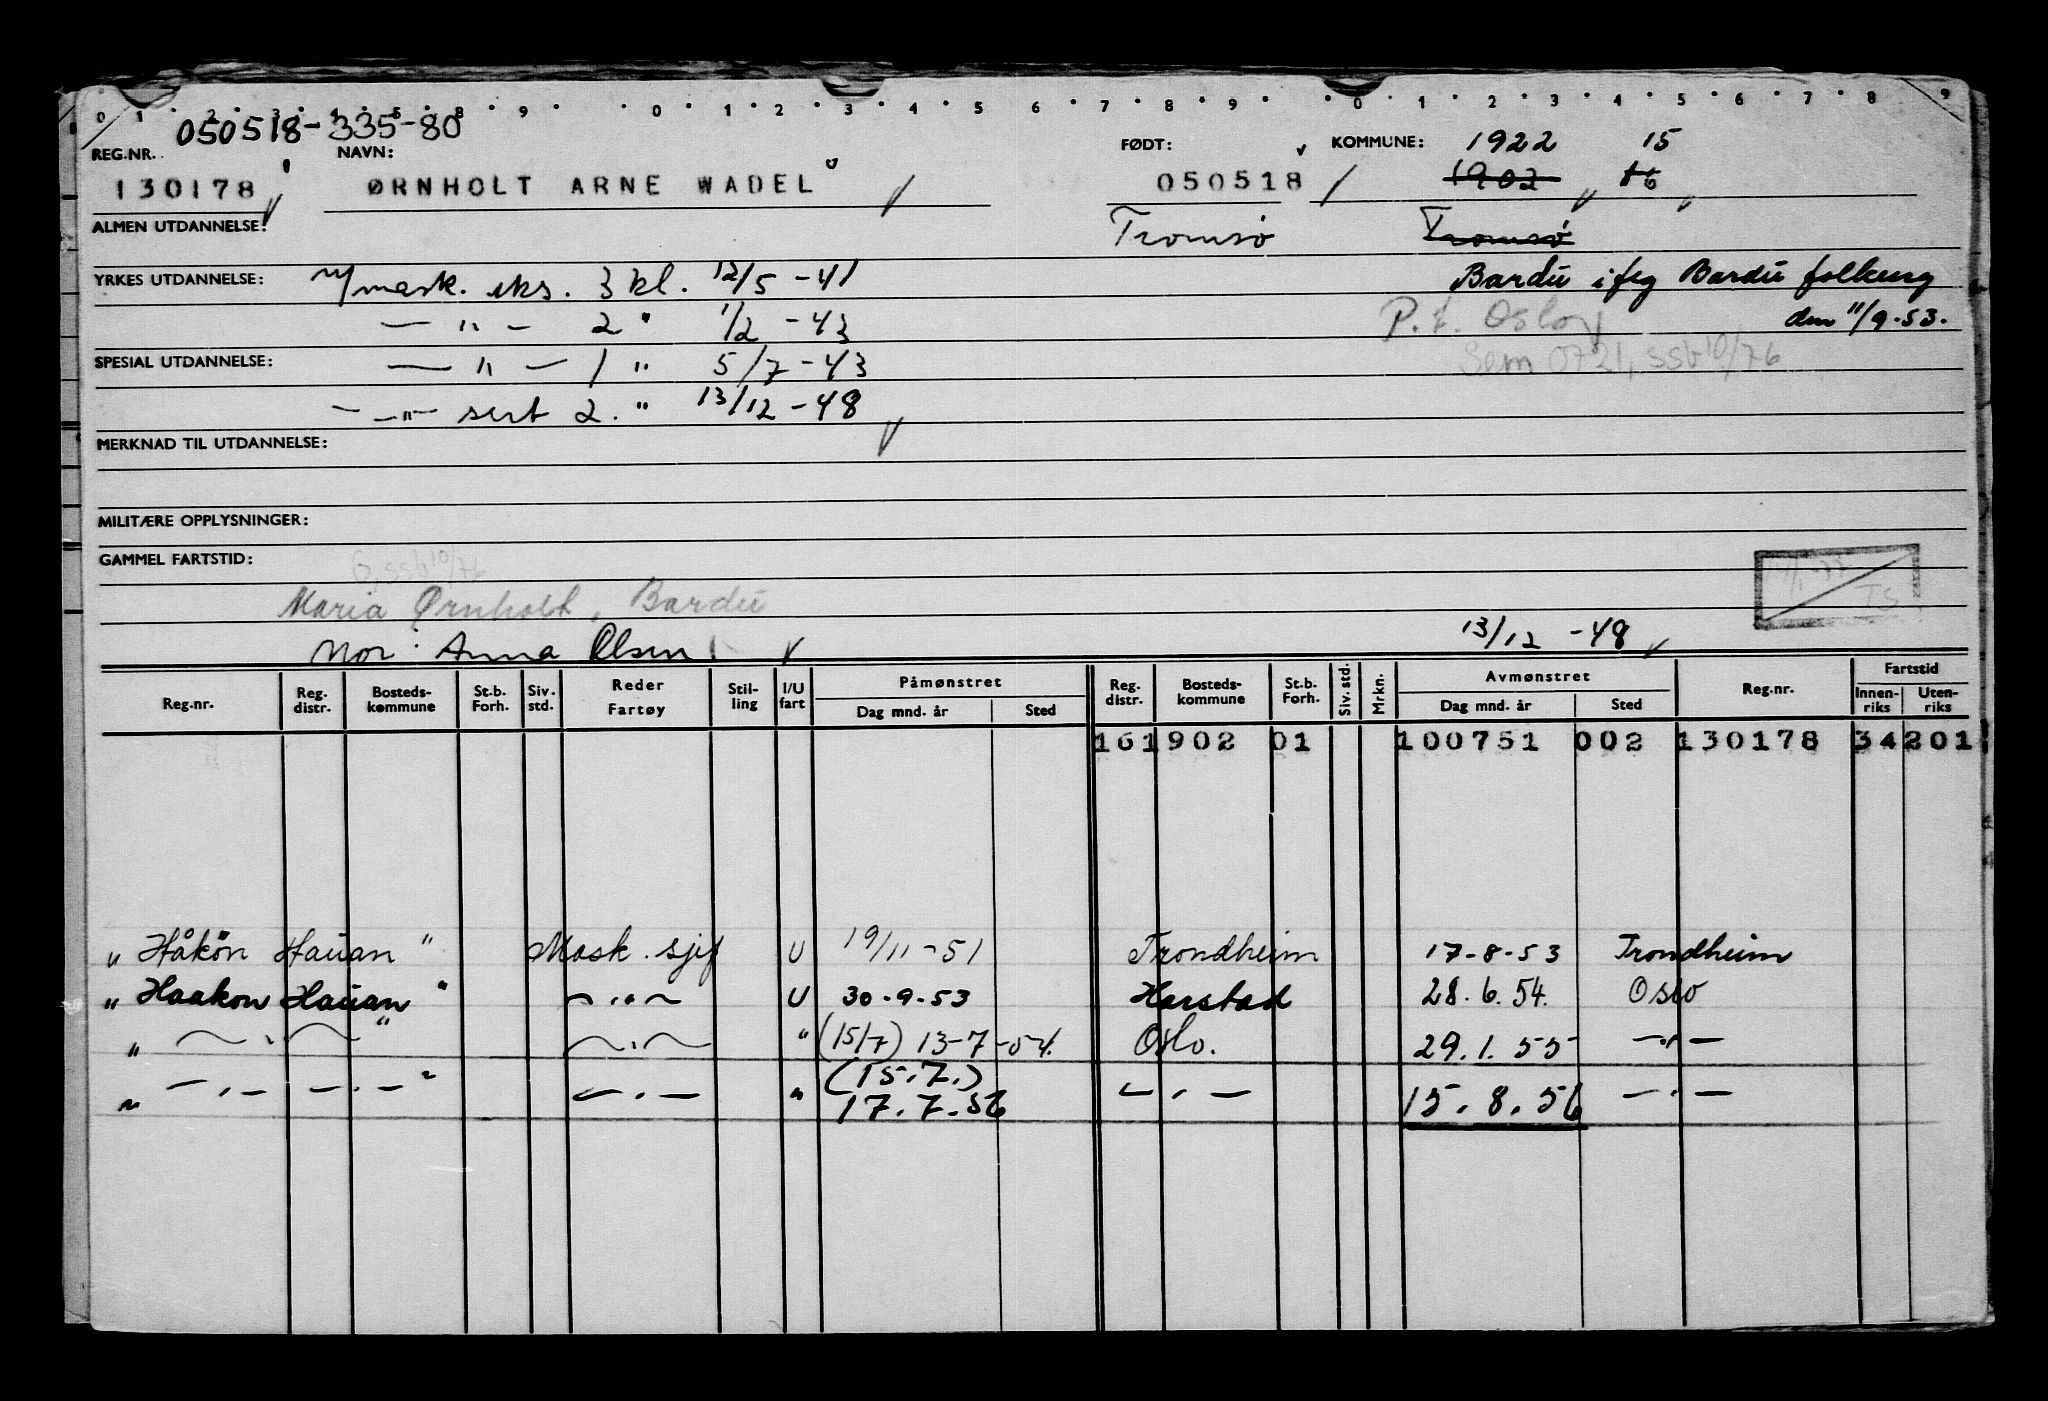 0 1 2 3 4 5 8 9 0 1 2 3 4 5 6 7 8 9 0 1 2 3 4 5 6 7 8 9
050518-335-80
REG.NR. NAVN: FØDT: KOMMUNE: 1922 15
130178 ØRNHOLT ARNE WADEL 050518 1902 16
ALMEN UTDANNELSE: Tromsø Tromsø
YRKES UTDANNELSE: mask. eks. 3 kl. 12/5 -41 Bardu i flg Bardu folkereg
— " — 2 " 1/2 -43 P.t. Oslo den 11/9-53.
SPESIAL UTDANNELSE: — " — 1 " 5/7-43 Sem 0721, ssb 10/76
— " — sert 2. " 13/12-48
MERKNAD TIL UTDANNELSE:
MILITÆRE OPPLYSNINGER:
GAMMEL FARTSTID:
G, ssb 10/76
Maria Ørnholt, Bardu
Mor: Anna Olsen. 13/12 -48
Reg.nr. Reg. distr. Bosteds- kommune St.b. Forh. Siv. std. Reder Fartøy Stil- ling I/U fart Påmønstret Dag mnd. år Sted Reg. distr. Bosteds- kommune St.b. Forh. Siv. std. Mrkn. Avmønstret Dag mnd. år Sted Reg.nr. Fartstid Innen- riks Uten- riks
161902 01 100751 002 130178 34201
" Håkon Hauan " Mask. sjef U 19/11-51 Trondheim 17-8-53 Trondheim
" Haakon Hauan " — " — U 30-9-53 Harstad 28.6.54. Oslo
" — " — " — " — " (15/7) 13-7-54. Oslo. 29.1.55 — " —
" — " — — " — " — " — " (15.7.) 17.7.56 — " — 15.8.56 — " —